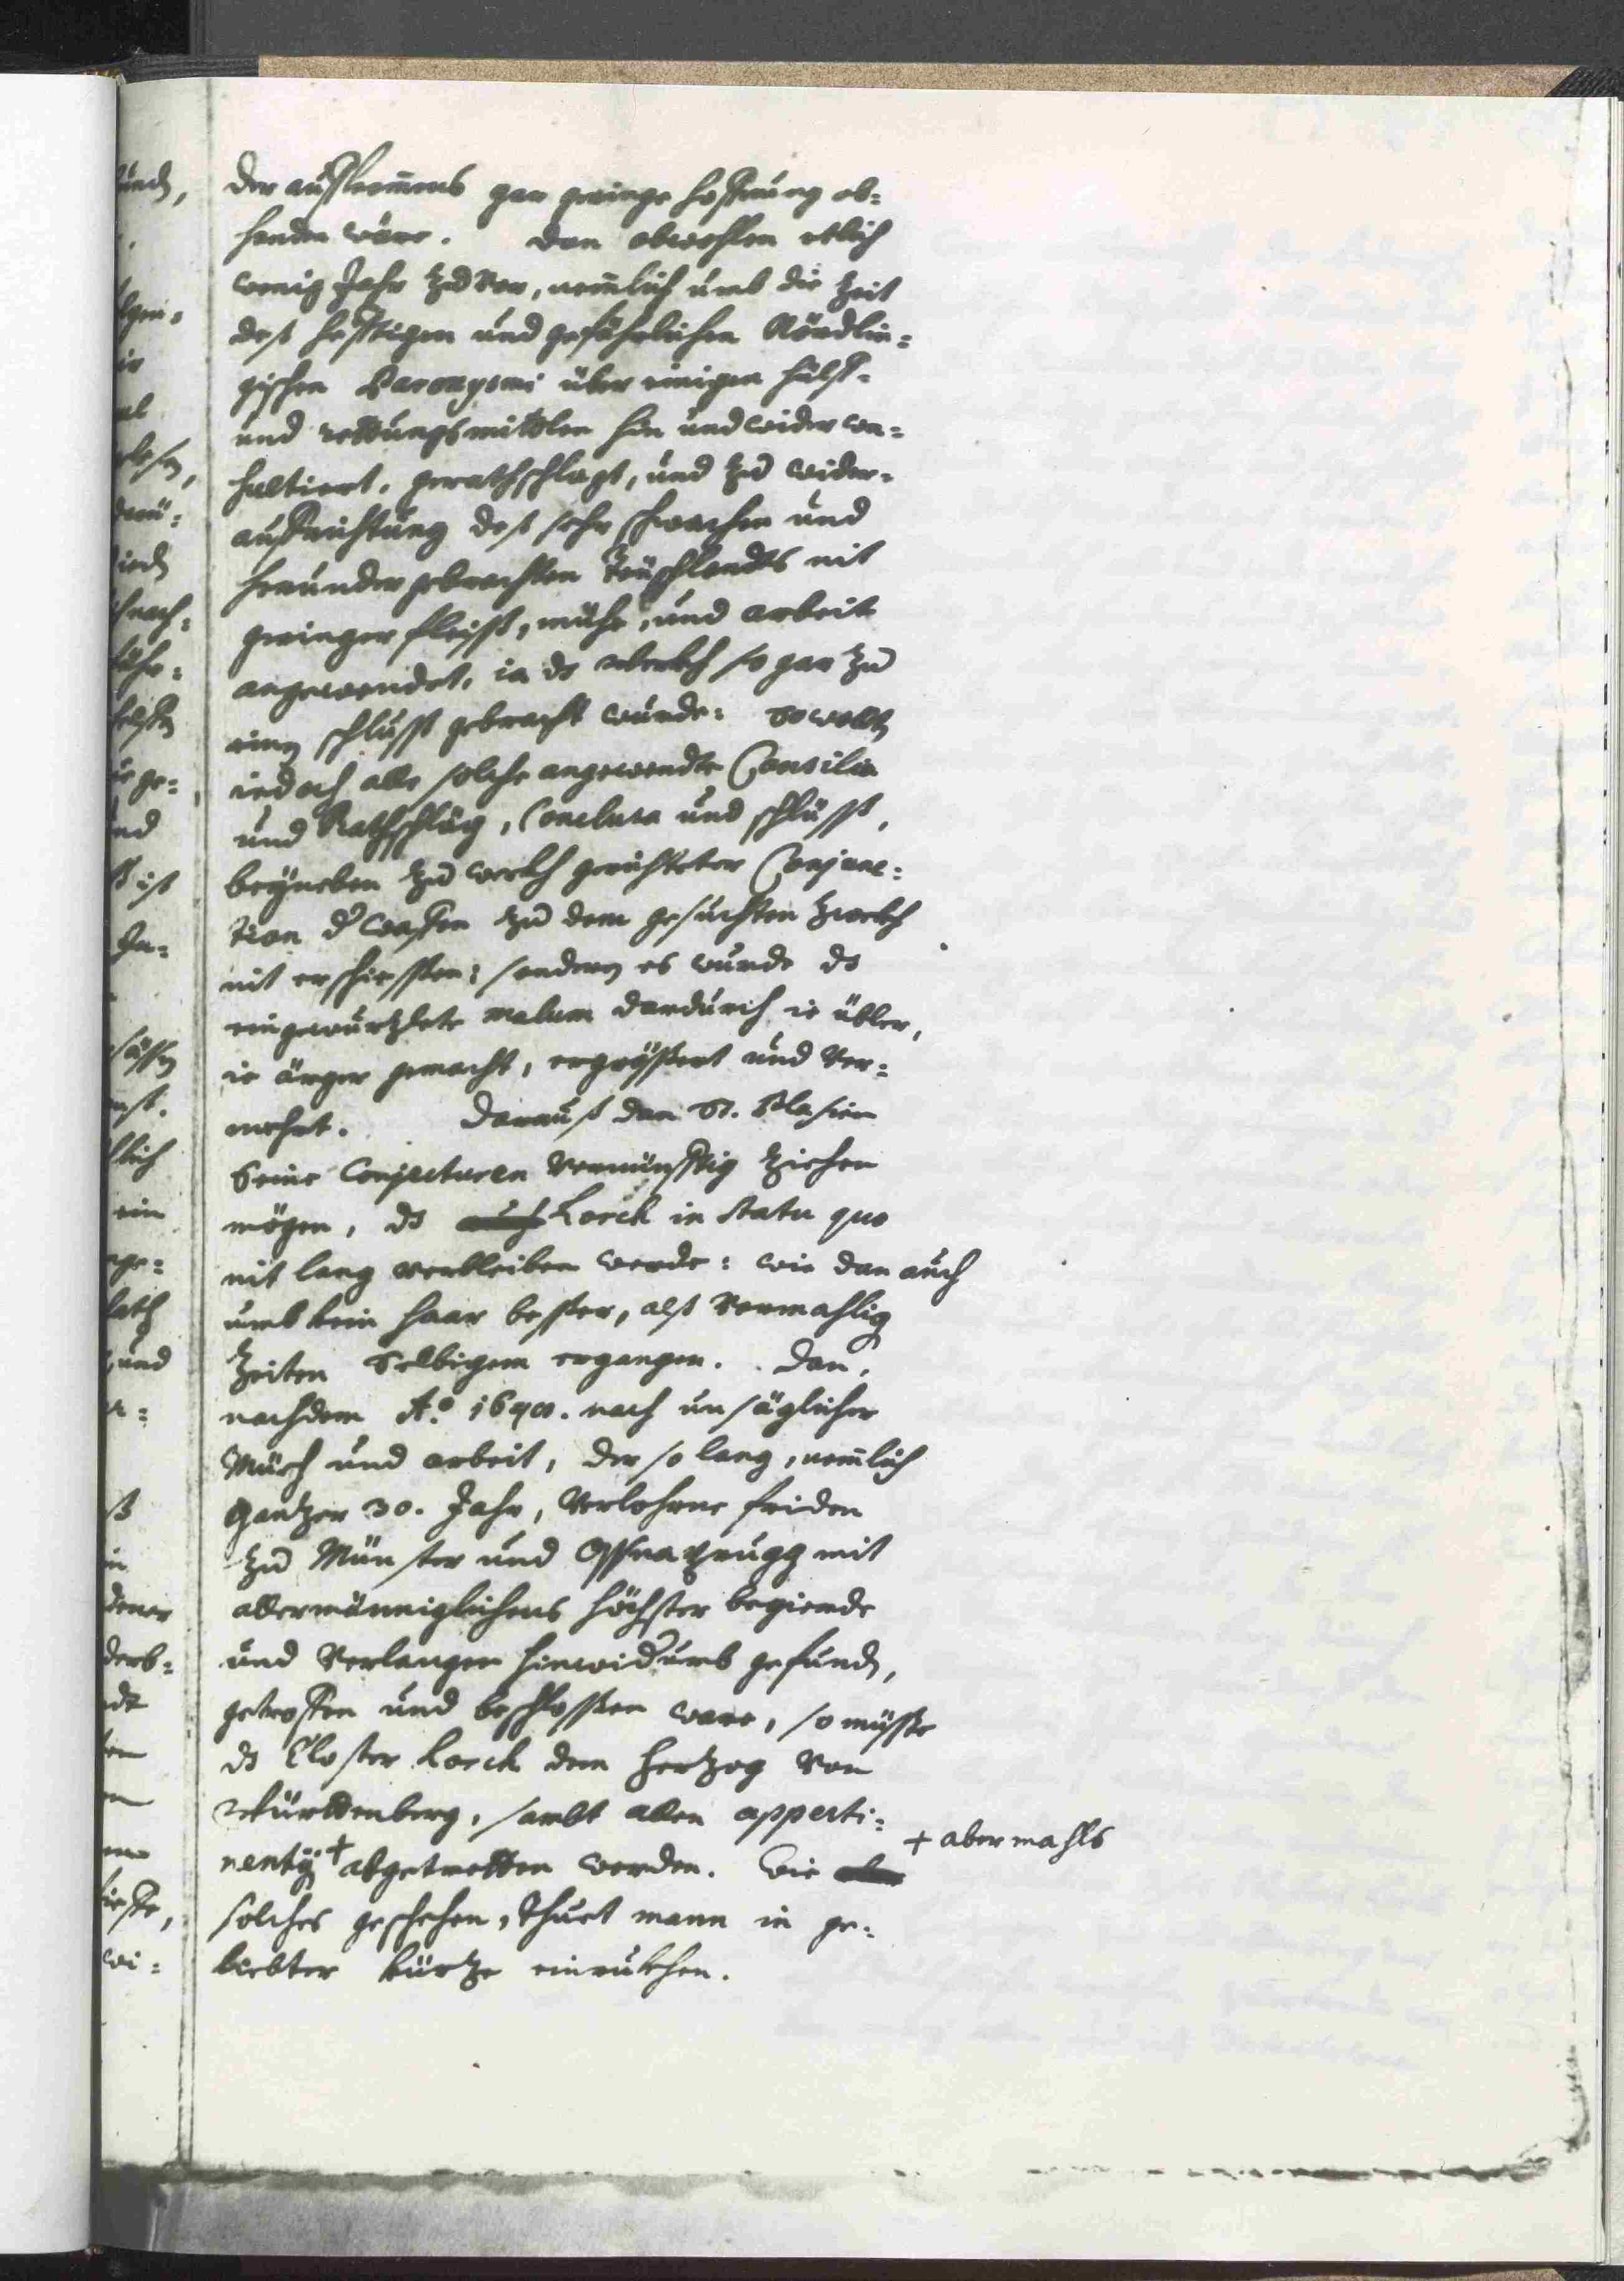 der auffkom̅ens gar geringe hoffnung ob=
handen wäre. dan obwohlen etlich
wenig Jahr zuvor, nem̅lich umb die Zeit
deß hefftigen und gefährlichen Nördlin=
gischen über einigen hülff-
und rettungsmittlen hin und wider con=
sultiert, gerathschlagt, und zu wider=
auffrichtung deß sehr schwachen und
herunder gebrachten Teüschlandts nit
geringer fleiß, mühe, und arbeit
angewendet, ia ds werkh so gar zu
einen schluß gebracht wurde: So wollten
iedoch alle solche angewendte Consilia
und Rathschläg, Conclusa und schlüß,
beyneben zu werkh gerichteter Conjunc=
tion d' waffen zu dem gesuchten zwekh
nit erschiessen: sondern es wurde ds
eingewurtzlete malum dardurch ie übler,
ie ärger gemacht, ergrößert und ver=
mehrt. Darauß dan St. Blasien
Seine Conjecturen vernünfftig ziehen
mögen, ds Lorch in statu quo
nit lang verbleiben werde: wie dan auch
umb kein haar besser, alß vormahlig
Zeiten Selbigem ergangen. Dan,
nachdem Aº. 1648. nach unsäglicher
Müeh und arbeit, der so lang, nem̅lich
gantzer 30. Jahr, verlohrne friden
zu Münster und Oßnaprugg mit
allermänniglichens höchster begierde
und verlangen hinwiderumb gefunden,
getroffen und beschlossen ware, so müßte
ds Closter Lorch dem Hertzog von
Württenberg, sambt allen apperti=
nentÿs + abgetretten werden. Wie
+ abermahls
solches geschehen, thuet mann in ge=
liebter kürtze einrukhen.